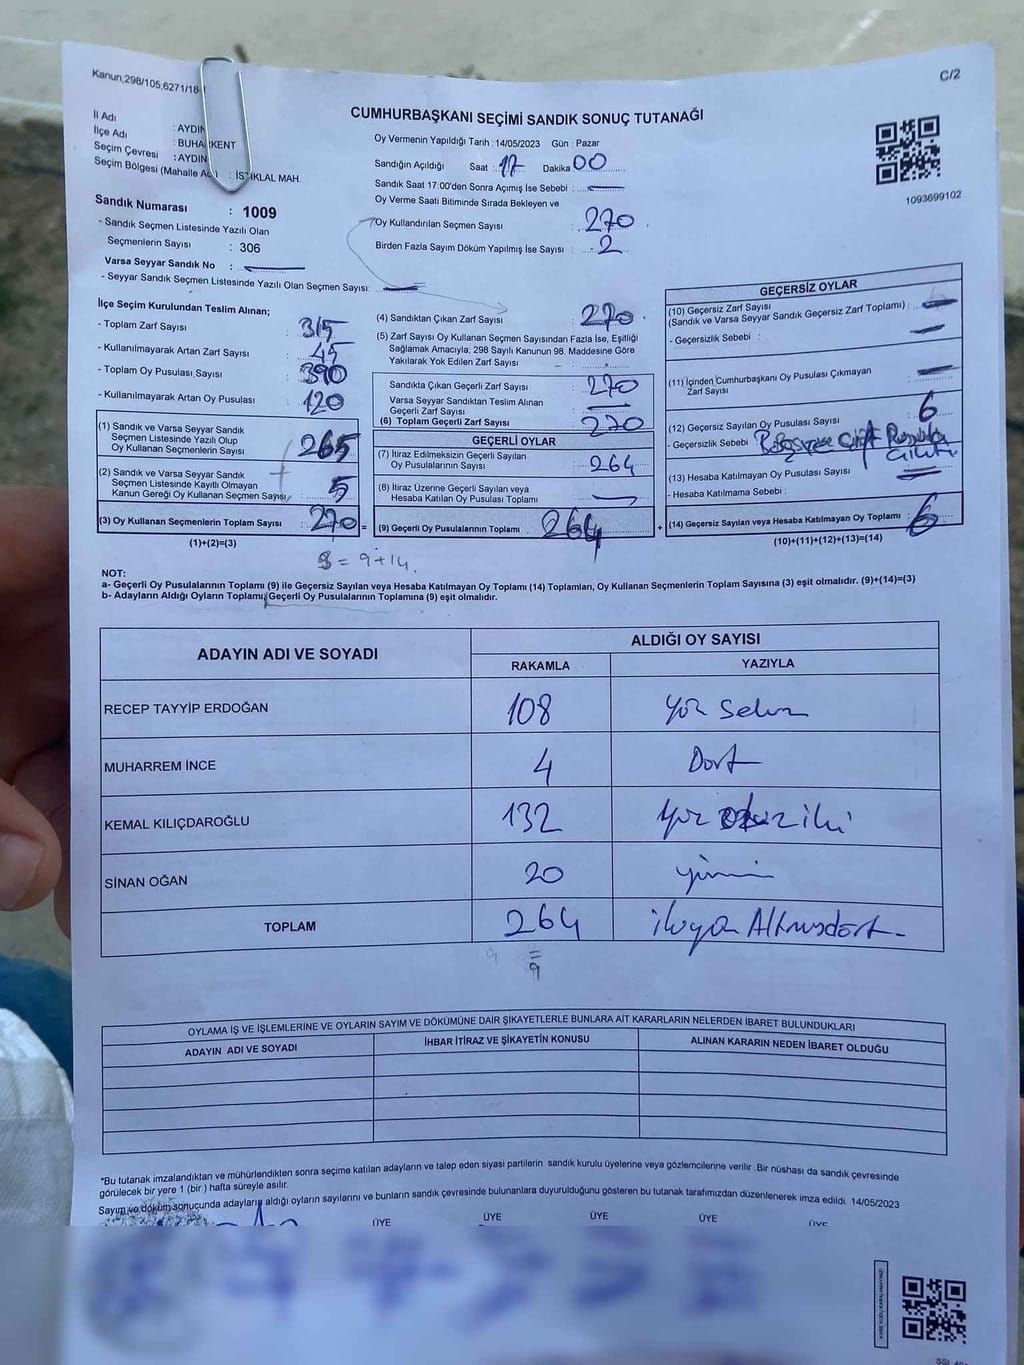 Kanun,298/105,6271/18
C/2
CUMHURBAŞKANI SEÇİMİ SANDIK SONUÇ TUTANAĞI
İl Adı : AYDIN
İlçe Adı : BUHARKENT
Seçim Çevresi : AYDIN
Seçim Bölgesi (Mahalle Adı) : İSTİKLAL MAH.
Oy Vermenin Yapıldığı Tarih :14/05/2023 Gün : Pazar
Sandığın Açıldığı Saat : 17 Dakika 00
Sandık Saat 17:00'den Sonra Açımış İse Sebebi :
Oy Verme Saati Bitiminde Sırada Bekleyen ve
Oy Kullandırılan Seçmen Sayısı : 270
Birden Fazla Sayım Döküm Yapılmış İse Sayısı : 2
1093699102
Sandık Numarası : 1009
- Sandık Seçmen Listesinde Yazılı Olan
Seçmenlerin Sayısı : 306
Varsa Seyyar Sandık No :
- Seyyar Sandık Seçmen Listesinde Yazılı Olan Seçmen Sayısı:
İlçe Seçim Kurulundan Teslim Alınan;
- Toplam Zarf Sayısı : 315
- Kullanılmayarak Artan Zarf Sayısı : 45
- Toplam Oy Pusulası Sayısı : 390
- Kullanılmayarak Artan Oy Pusulası : 120
(1) Sandık ve Varsa Seyyar Sandık
Seçmen Listesinde Yazılı Olup
Oy Kullanan Seçmenlerin Sayısı : 265
(2) Sandık ve Varsa Seyyar Sandık
Seçmen Listesinde Kayıtlı Olmayan
Kanun Gereği Oy Kullanan Seçmen Sayısı : 5
(3) Oy Kullanan Seçmenlerin Toplam Sayısı : 270 =
(1)+(2)=(3)
(4) Sandıktan Çıkan Zarf Sayısı : 270
(5) Zarf Sayısı Oy Kullanan Seçmen Sayısından Fazla İse, Eşitliği
Sağlamak Amacıyla; 298 Sayılı Kanunun 98. Maddesine Göre
Yakılarak Yok Edilen Zarf Sayısı :
Sandıkta Çıkan Geçerli Zarf Sayısı : 270
Varsa Seyyar Sandıktan Teslim Alınan
Geçerli Zarf Sayısı :
(6) Toplam Geçerli Zarf Sayısı : 270
GEÇERLİ OYLAR
(7) İtiraz Edilmeksizin Geçerli Sayılan
Oy Pusulalarının Sayısı : 264
(8) İtiraz Üzerine Geçerli Sayılan veya
Hesaba Katılan Oy Pusulası Toplamı :
(9) Geçerli Oy Pusulalarının Toplamı : 264 +
GEÇERSİZ OYLAR
(10) Geçersiz Zarf Sayısı
(Sandık ve Varsa Seyyar Sandık Geçersiz Zarf Toplamı) :
- Geçersizlik Sebebi :
(11) İçinden Cumhurbaşkanı Oy Pusulası Çıkmayan
Zarf Sayısı :
(12) Geçersiz Sayılan Oy Pusulası Sayısı : 6
- Geçersizlik Sebebi : çift
(13) Hesaba Katılmayan Oy Pusulası Sayısı :
- Hesaba Katılmama Sebebi :
(14) Geçersiz Sayılan veya Hesaba Katılmayan Oy Toplamı : 6
(10)+(11)+(12)+(13)=(14)
3 = 9+14.
NOT:
a- Geçerli Oy Pusulalarının Toplamı (9) ile Geçersiz Sayılan veya Hesaba Katılmayan Oy Toplamı (14) Toplamları, Oy Kullanan Seçmenlerin Toplam Sayısına (3) eşit olmalıdır. (9)+(14)=(3)
b- Adayların Aldığı Oyların Toplamı, Geçerli Oy Pusulalarının Toplamına (9) eşit olmalıdır.
ADAYIN ADI VE SOYADI
ALDIĞI OY SAYISI
RAKAMLA YAZIYLA
RECEP TAYYİP ERDOĞAN 108 Yüz Sekiz
MUHARREM İNCE 4 Dört
KEMAL KILIÇDAROĞLU 132 Yüz otuz iki
SİNAN OĞAN 20 yirmi
TOPLAM 264 ikiyüz Altmışdört
9 = 9
OYLAMA İŞ VE İŞLEMLERİNE VE OYLARIN SAYIM VE DÖKÜMÜNE DAİR ŞİKAYETLERLE BUNLARA AİT KARARLARIN NELERDEN İBARET BULUNDUKLARI
ADAYIN ADI VE SOYADI İHBAR İTİRAZ VE ŞİKAYETİN KONUSU ALINAN KARARIN NEDEN İBARET OLDUĞU
*Bu tutanak imzalandıktan ve mühürlendikten sonra seçime katılan adayların ve talep eden siyasi partilerin sandık kurulu üyelerine veya gözlemcilerine verilir .Bir nüshası da sandık çevresinde
görülecek bir yere 1 (bir ) hafta süreyle asılır.
Sayım ve döküm sonucunda adayların aldığı oyların sayılarını ve bunların sandık çevresinde bulunanlara duyurulduğunu gösteren bu tutanak tarafımızdan düzenlenerek imza edildi. 14/05/2023
ÜYE ÜYE ÜYE ÜYE ÜYE